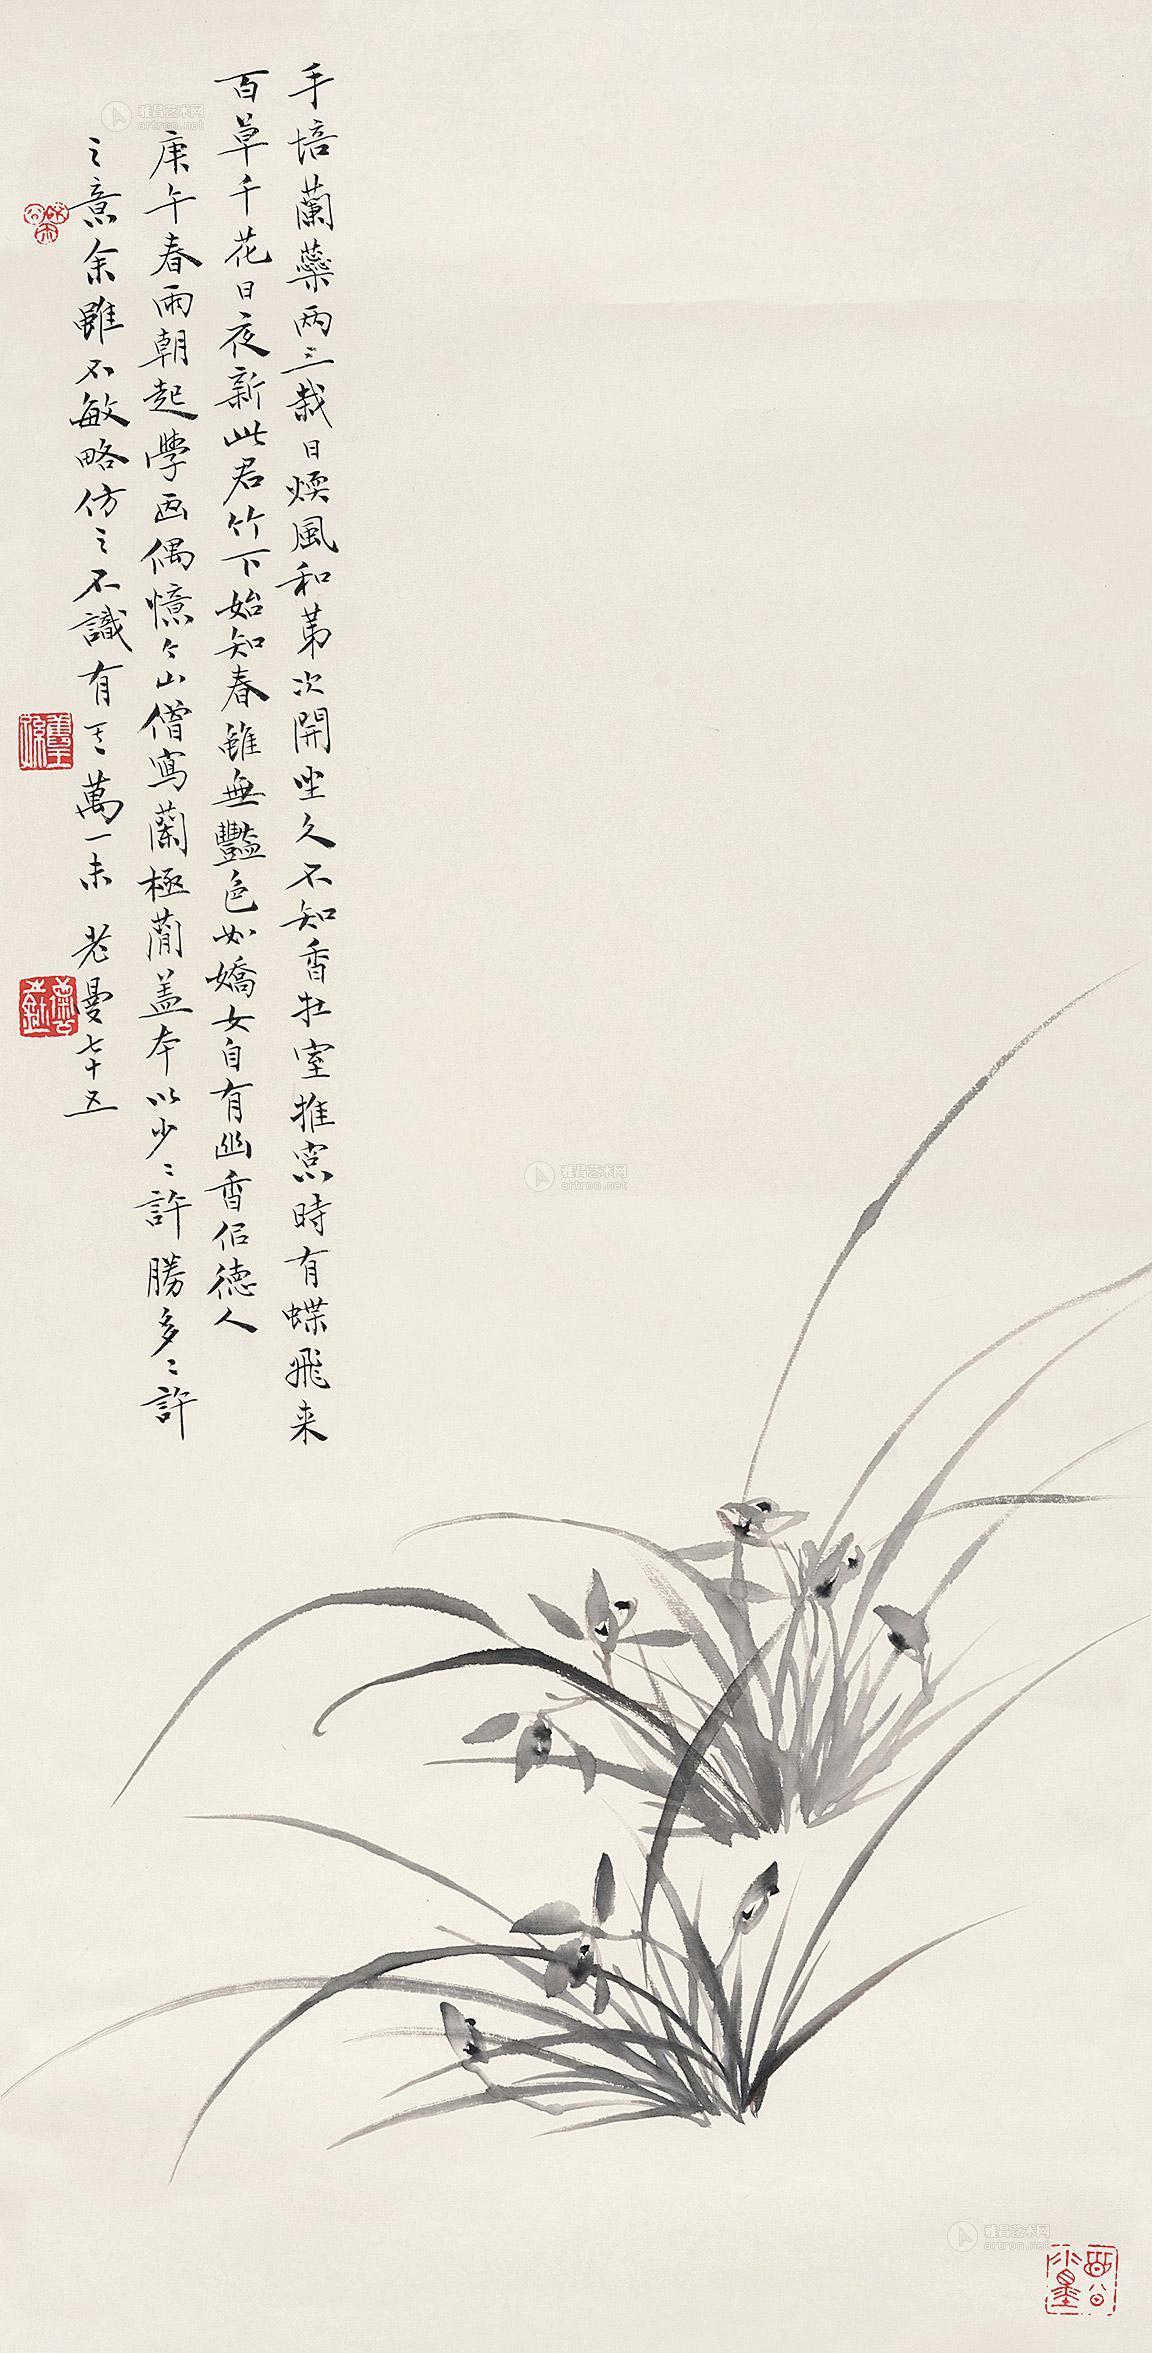 手培蘭蘂兩三栽日煗風和苐次開坐久不知香在室推窓時有蝶飛来
百草千花日夜新此君竹下始知春雖無豔色如嬌女自有幽香似德人
庚午春雨朝起學画偶憶々山僧寫蘭極蕳盖本以少〻許勝多〻許
之意余雖不敏略仿之不識有其萬一未 老曼七十五
雅昌艺术网
artron.net
雅昌艺术网
artron.net
雅昌艺术网
artron.net